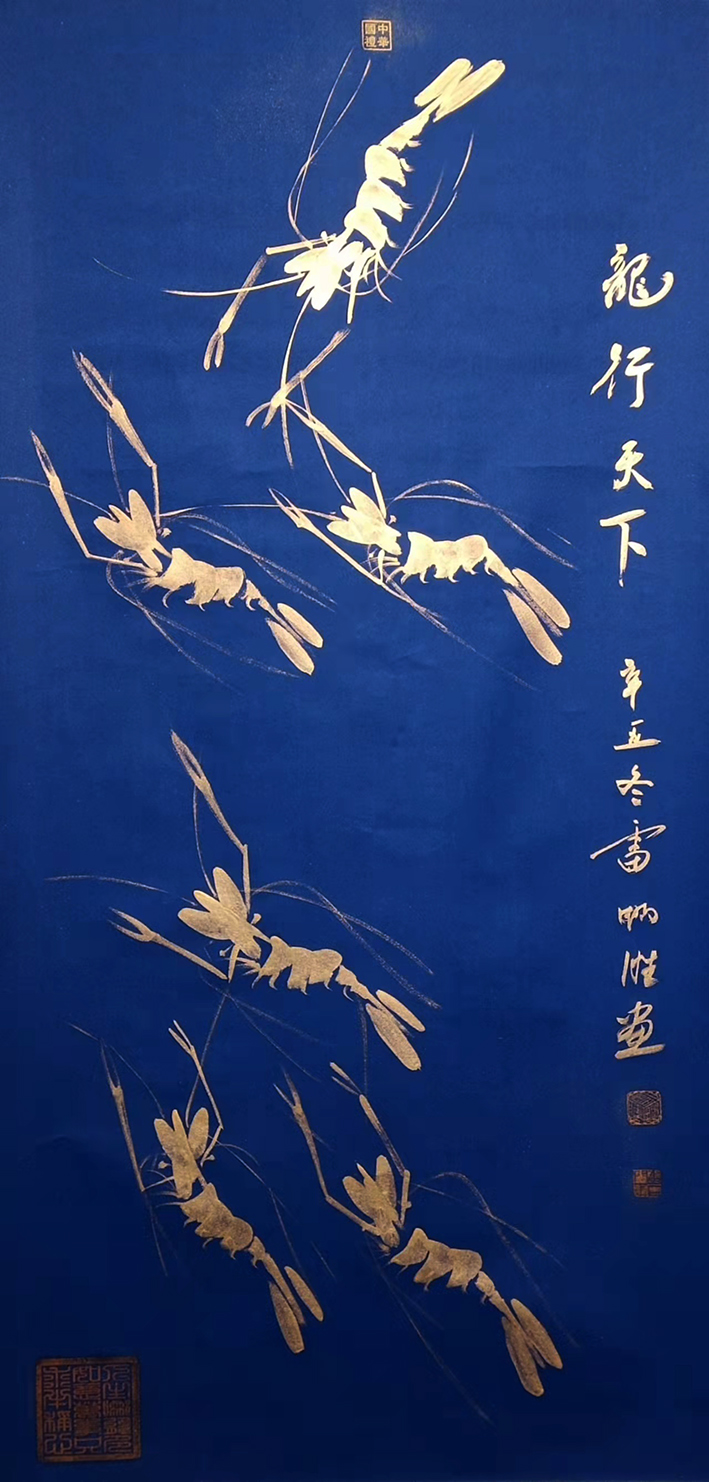 中華
國禮
龍行天下
辛丑冬雷炳胜畫